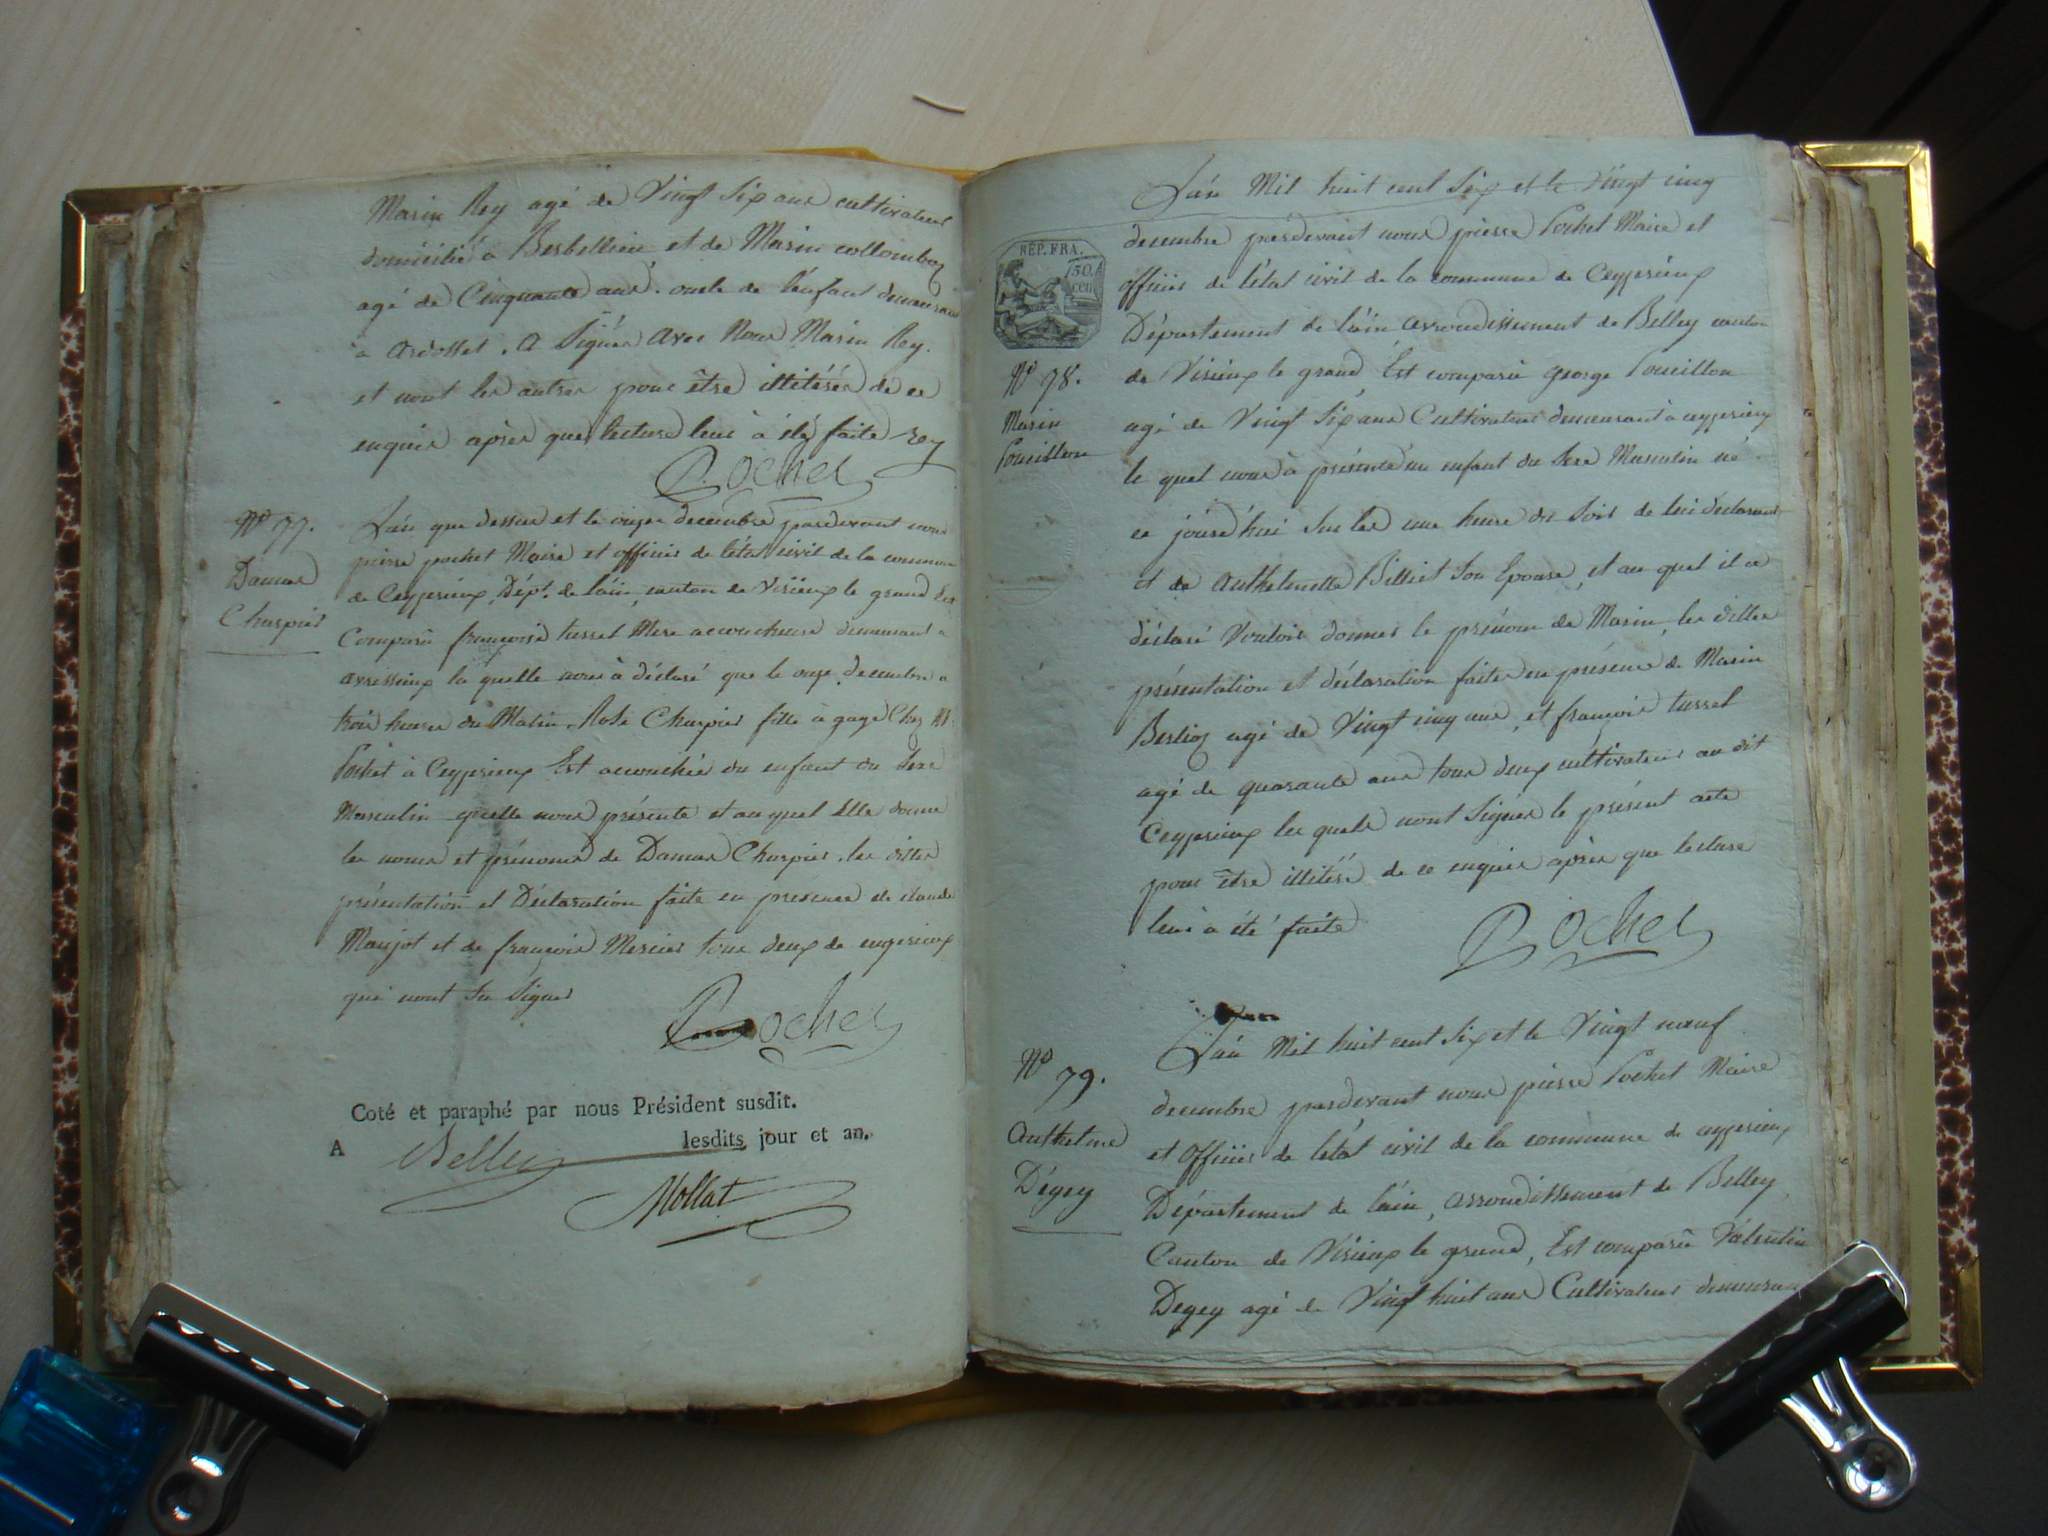 Marin Rey agé de Vingt Six ans cultivateur
domicilié à et de Marin collomboz
agé de Cinquante ans. oncle de l'enfant demeurant
à ardosset. A Signér avec Nous Marin Rey.
et nont les autres pour être illitérés de ce
enquis après que lecture leur à été faite rey
Pochet
Nº 77.
Damas
Charpiat
L'an que dessus et le onze decembre pardevant nous
pierre pochet Maire et officier de l'état civil de la commune
de Ceyzerieux, Dépt. de l'ain, canton de Virieux le grand Est
Comparu françoise tussel Mere accoucheuse demeurant a
avressieux la quelle nous à déclaré que le onze decembre a
trois heures du Matin. Rose Charpiat fille à gage Chez Mr.
Pochet à Ceyzerieux Est accouchée du enfant du Sexe
Masculin quelle nous présente et au quel Elle donne
les noms et prénoms de Damas Charpiat. les dittes
présentation et Déclaration faite en présence de claude
Maujot et de françois Mercier tous deux de
qui nont Su Signer
Pochet
Coté et paraphé par nous Président susdit.
A Belley lesdits jour et an.
Mollat
L'an Mil huit cent Six et le Vingt cinq
decembre pardevant nous pierre Pochet Maire et
officier de l'état civil de la commune de Ceyzerieux
Département de l'ain arrondissement de Belley canton
de Virieux le grand, Est comparu george Poncillon
agé de Vingt Six ans Cultivateur demeurant à ceyzerieux
le quel nous à présenté un enfant du Sexe Masculin né
ce jourd'hui Sur les une heure du Soir de lui déclarant
et de anthelmette Billiet Son Epouse, et au quel il a
déclaré Vouloir donner le prénom de Marin, les dittes
présentation et déclaration faites en présence de Marin
Berlioz agé de Vingt cinq ans, et françois tussel
agé de quarante ans tous deux cultivateurs au dit
Ceyzerieux les quels nont Signér le présent acte
pour être illitéré de ce enquis après que lecture
leur à été faite
Pochet
RÉP. FRA.
50.
cen
Nº 78.
Marin
Poncillon
Nº 79.
Anthelme
Dégey
L'an Mil huit cent Six et le Vingt neuf
decembre pardevant nous pierre Pochet Maire
et officier de l'état civil de la commune de ceyzerieux
Département de l'ain, arrondissement de Belley,
Canton de Virieux le grand, Est comparu Valentin
Degey agé de Vingt huit ans Cultivateur demeurant